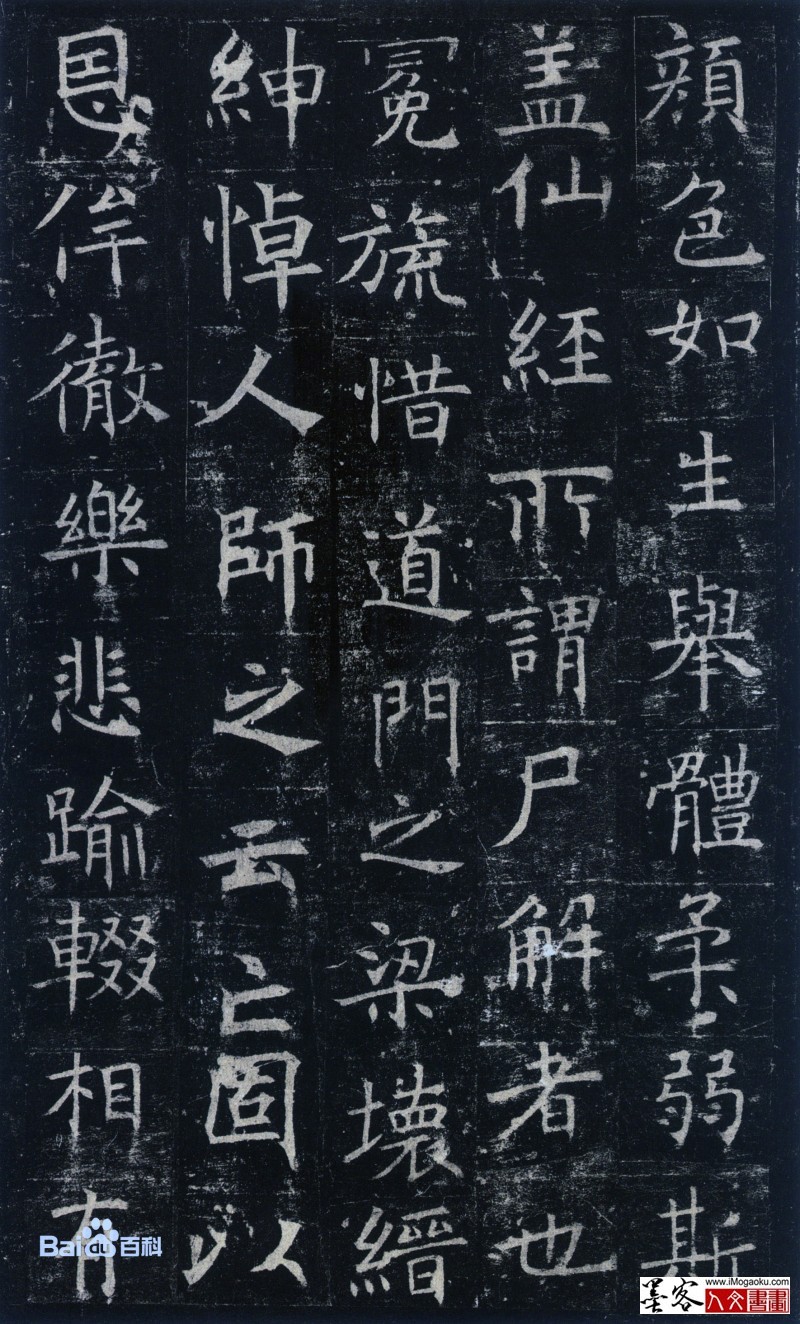 顔色如生舉體柔弱斯
盖仙經所謂尸解者也
冕旒惜道門之梁壞縉
紳悼人師之云亡固以
恩侔徹樂悲踰輟相有
Baidu百科
墨客
www.iMogaoku.com
人文書畫